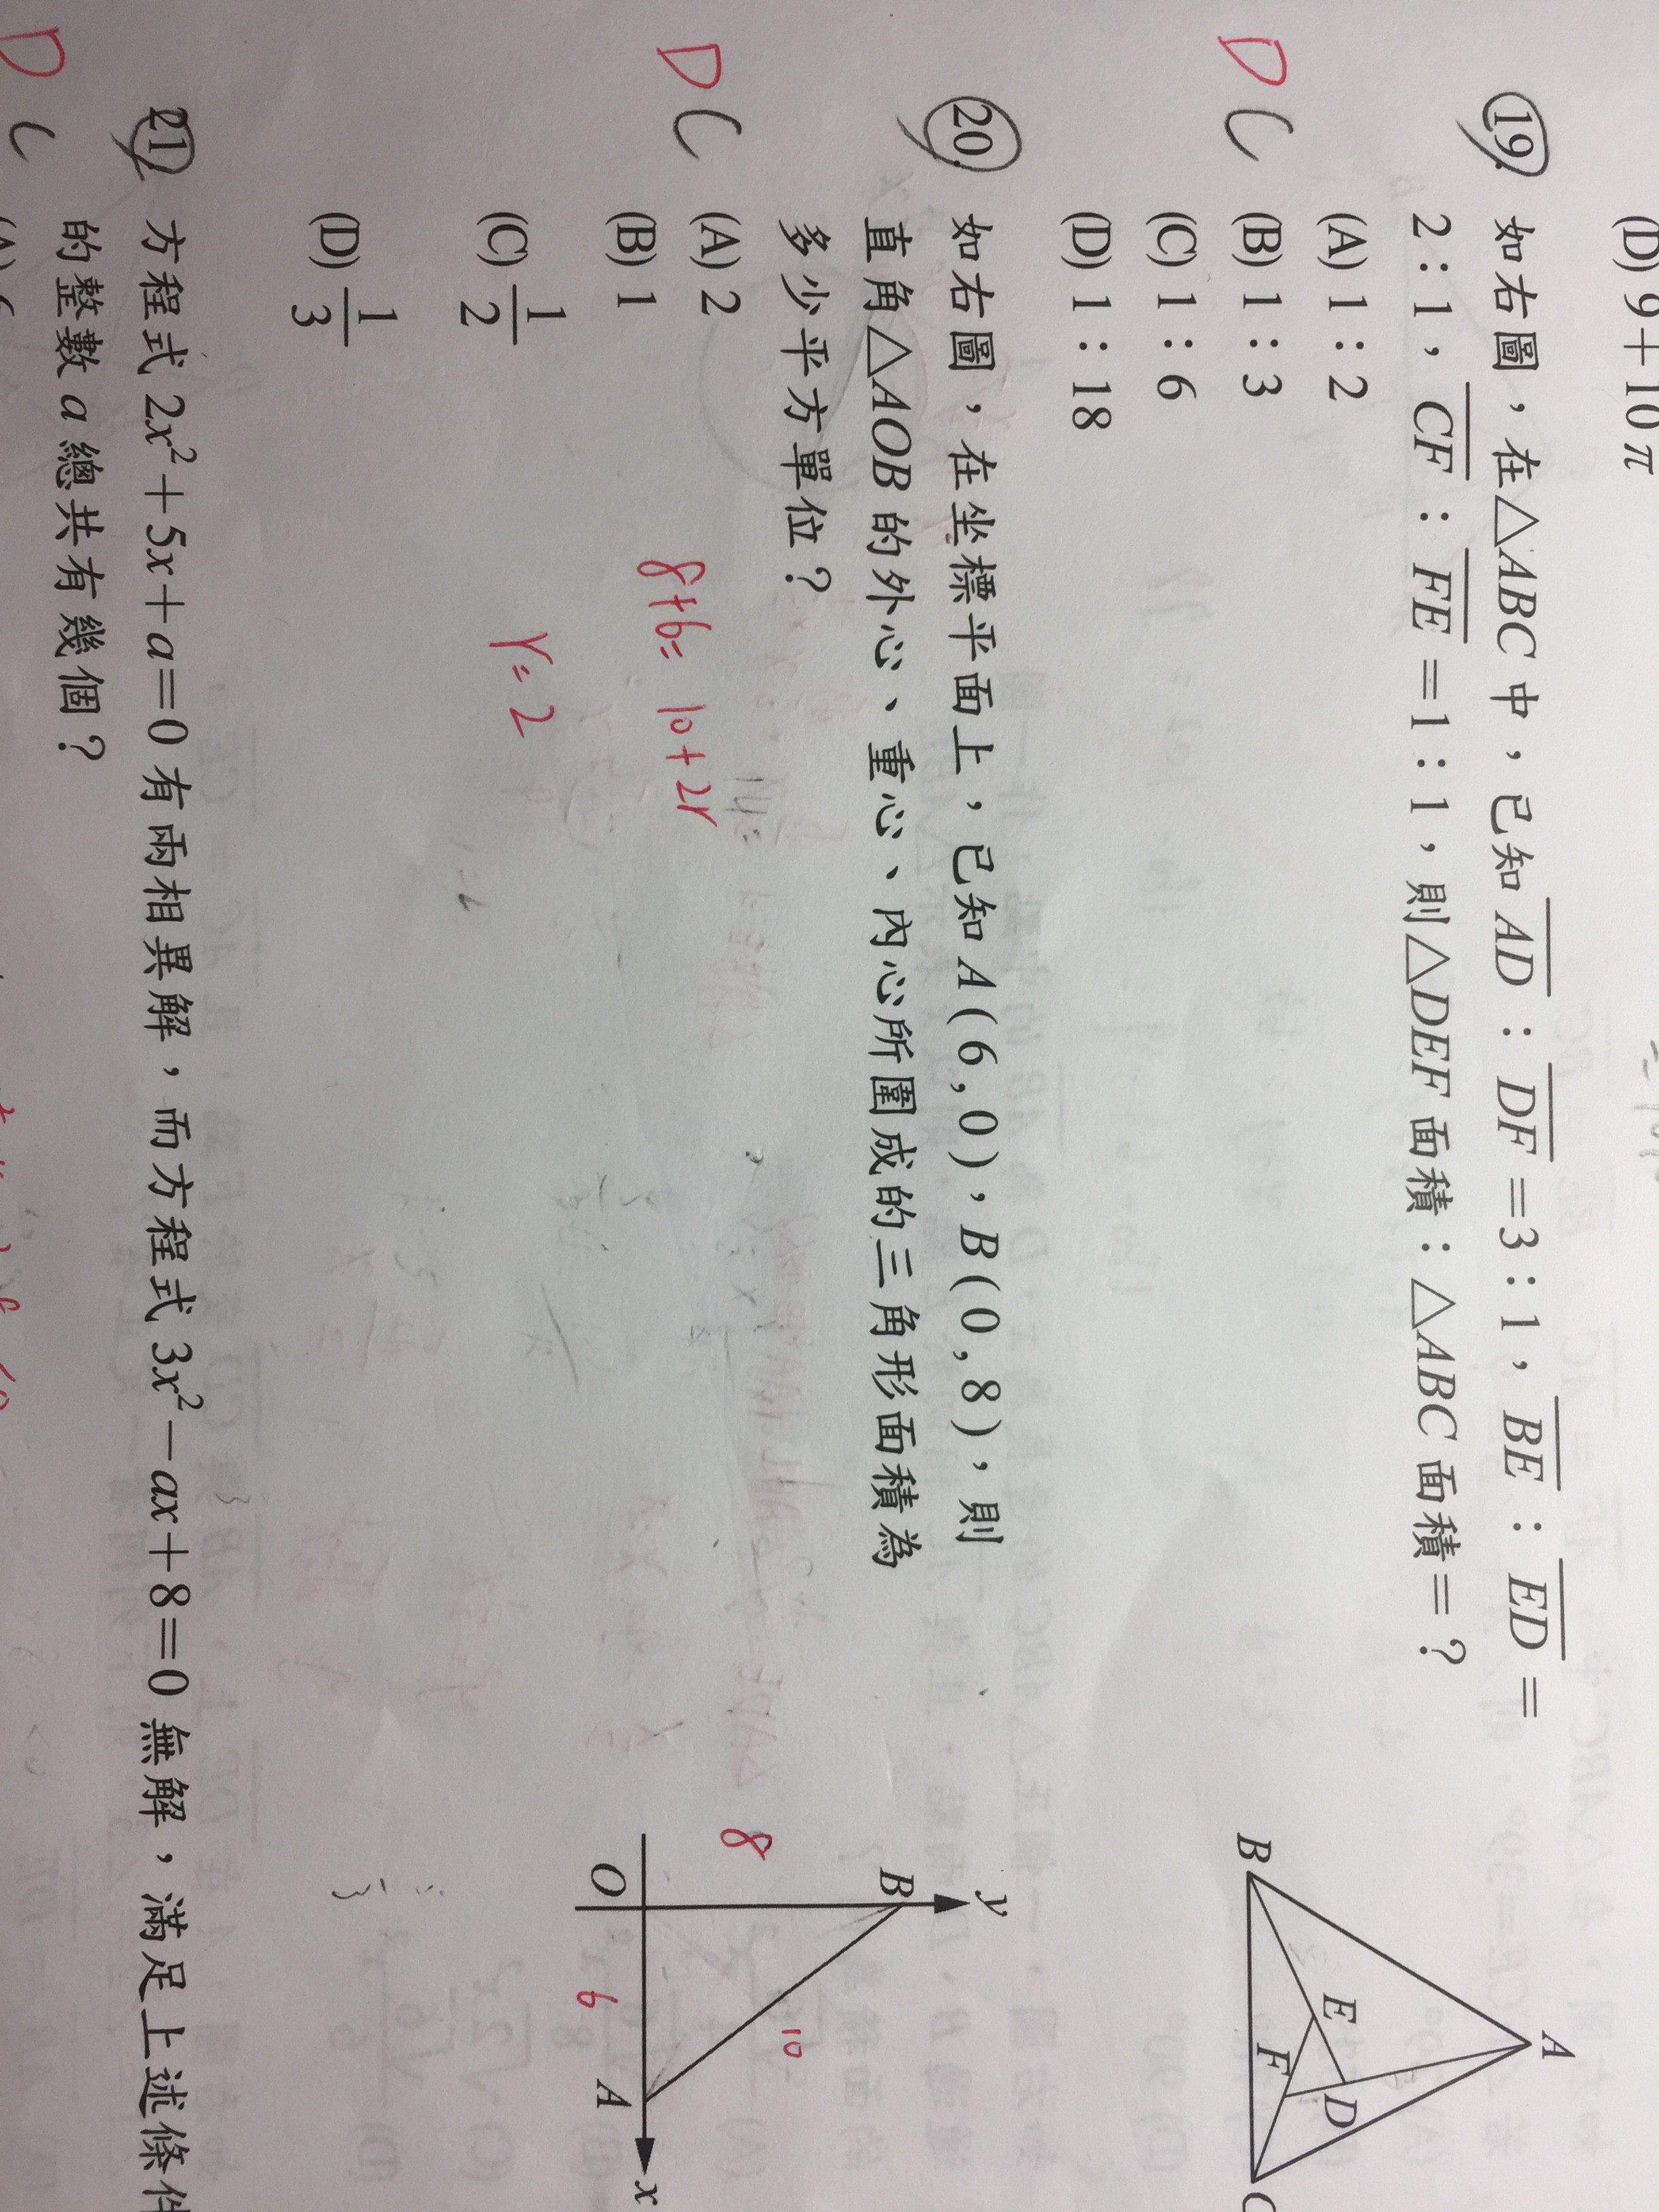 (D) 9+10π
D C 19. 如右圖，在△ABC中，已知 AD：DF=3：1，BE：ED=
2：1，CF：FE=1：1，則△DEF面積：△ABC面積=？
(A) 1：2
(B) 1：3
(C) 1：6
(D) 1：18
A
B
E
D
F
C
D C 20. 如右圖，在坐標平面上，已知A(6,0)，B(0,8)，則
直角△AOB的外心、重心、內心所圍成的三角形面積為
多少平方單位？
(A) 2
(B) 1
(C) 1/2
(D) 1/3
8+6=10+2r
r=2
y
B
8
10
O
6
A
x
D C 21. 方程式 2x²+5x+a=0 有兩相異解，而方程式 3x²－ax+8=0 無解，滿足上述條件
的整數 a 總共有幾個？